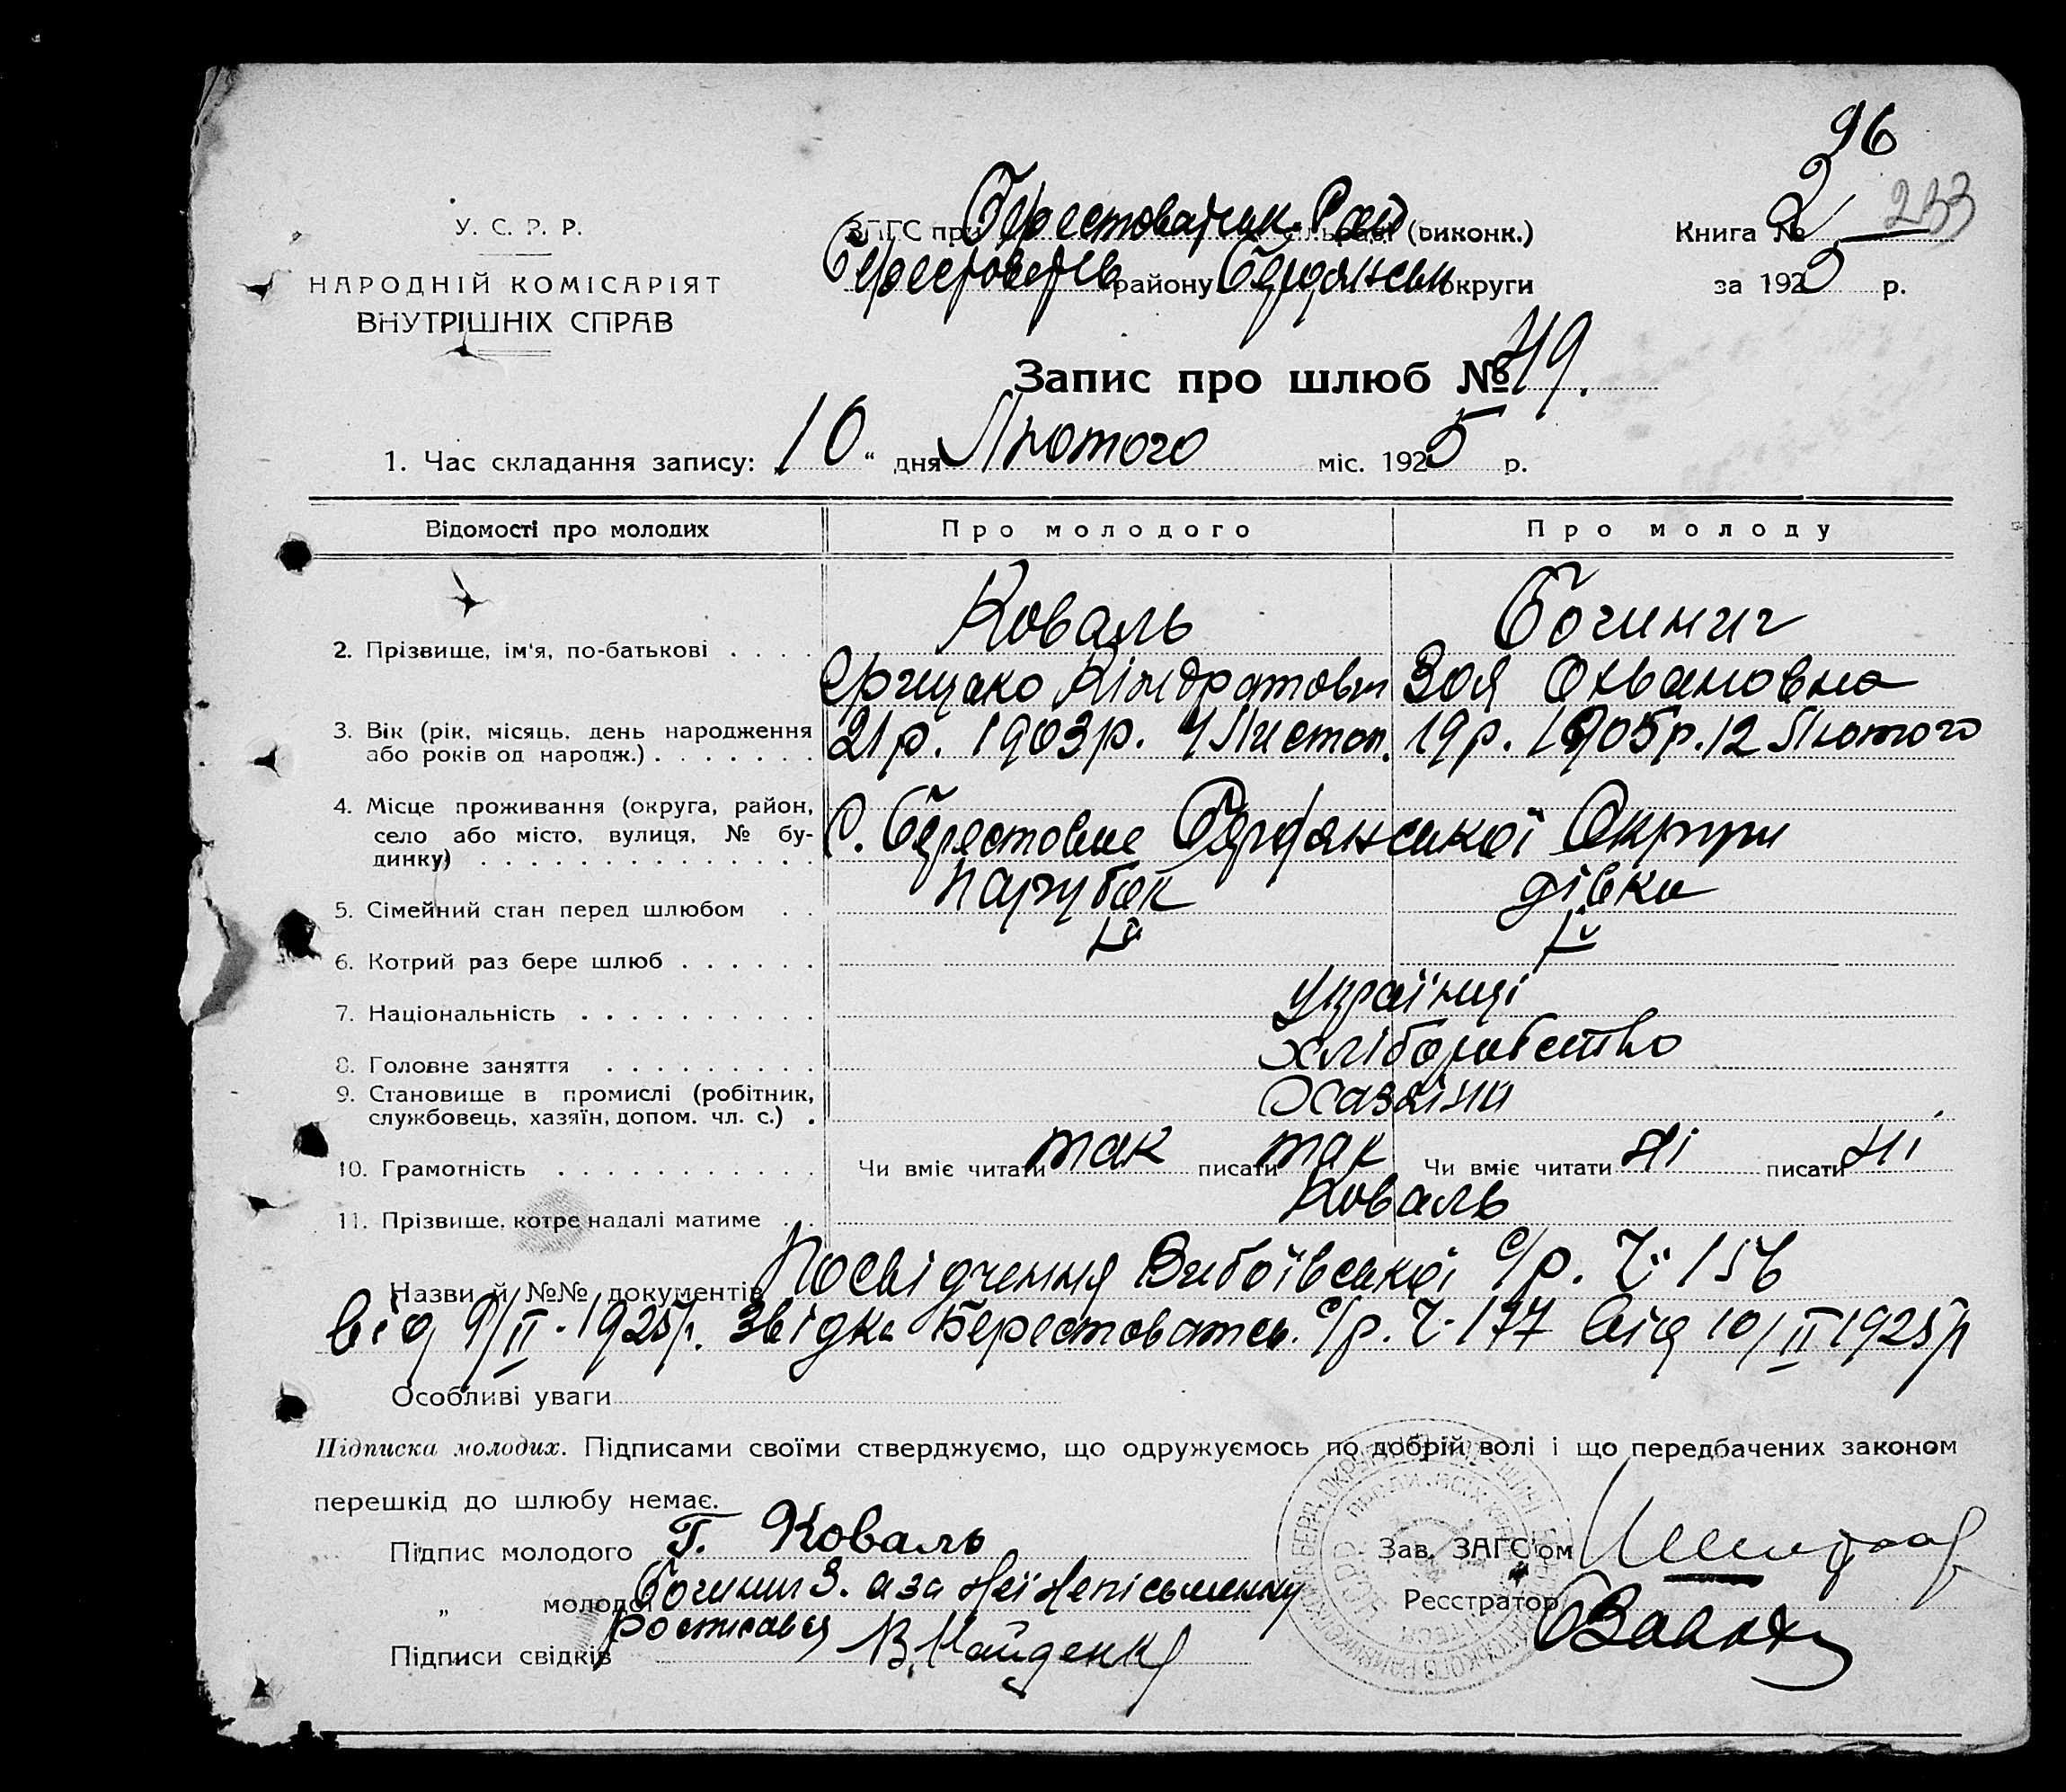 96
У. С. Р. Р.
НАРОДНІЙ КОМІСАРІЯТ
ВНУТРІШНІХ СПРАВ
ЗАГС при Берестоватськ. Рай (виконк.)
району Бердянськ округи
Книга № 2 233
за 1925 р.
Запис про шлюб № 49.
1. Час складання запису: 10 " дня Лютого міс. 1925 р.
Відомості про молодих Про молодого Про молоду
2. Прізвище, ім'я, по-батькові Коваль
Грицько Кіндратович Зоя
3. Вік (рік, місяць, день народження або років од народж.) 21 р. 1903 р. 4 Листоп. 19 р. 1905 р. 12 Лютого
4. Місце проживання (округа, район, село або місто, вулиця, № будинку) С. Берестове Бердянської Округи
5. Сімейний стан перед шлюбом парубок дівка
6. Котрий раз бере шлюб
7. Національність українці
8. Головне заняття хліборобство
9. Становище в промислі (робітник, службовець, хазяїн, допом. чл. с.) Хазяіни
10. Грамотність Чи вміє читати так писати так Чи вміє читати ні писати ні
11. Прізвище, котре надалі матиме Коваль
Назви й №№ документів Посвідчення с/р. Ч. 156
від 9/II-1925р. Звідка Берестоватськ. с/р. Ч. 177 від 10/II 1925р
Особливі уваги
Підписка молодих. Підписами своїми стверджуємо, що одружуємось по добрій волі і що передбачених законом
перешкід до шлюбу немає.
Підпис молодого Г. Коваль
Зав. ЗАГС'ом
" молодої З. а за неї непісьменну
Реєстратор
ростисався
Підписи свідків В. Найденко